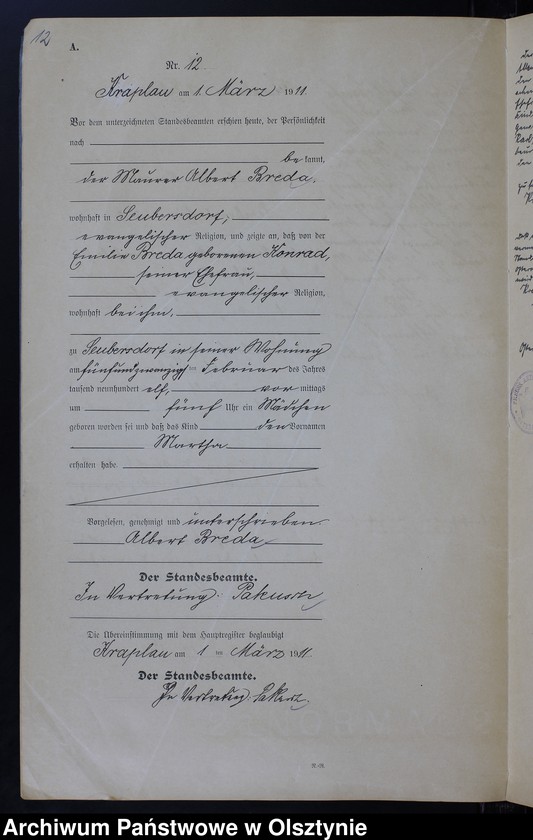 12
A.
Nr. 12
Kraplau am 1. März 1911.
Vor dem unterzeichneten Standesbeamten erschien heute, der Persönlichkeit
nach
bekannt,
der Maurer Albert Breda,
wohnhaft in Seubersdorf,
evangelischer Religion, und zeigte an, daß von der
Emilie Breda geborenen Konrad,
seiner Ehefrau,
evangelischer Religion,
wohnhaft bei ihm,
zu Seubersdorf in seiner Wohnung
am fünfundzwanzigsten Februar des Jahres
tausend neunhundert elf, vormittags
um fünf Uhr ein Mädchen
geboren worden sei und daß das Kind den Vornamen
Martha
erhalten habe.
Vorgelesen, genehmigt und unterschrieben
Albert Breda
Der Standesbeamte.
In Vertretung:
Die Übereinstimmung mit dem Hauptregister beglaubigt
Kraplau am 1 ten März 1911.
Der Standesbeamte.
In Vertretung:
Archiwum Państwowe w Olsztynie